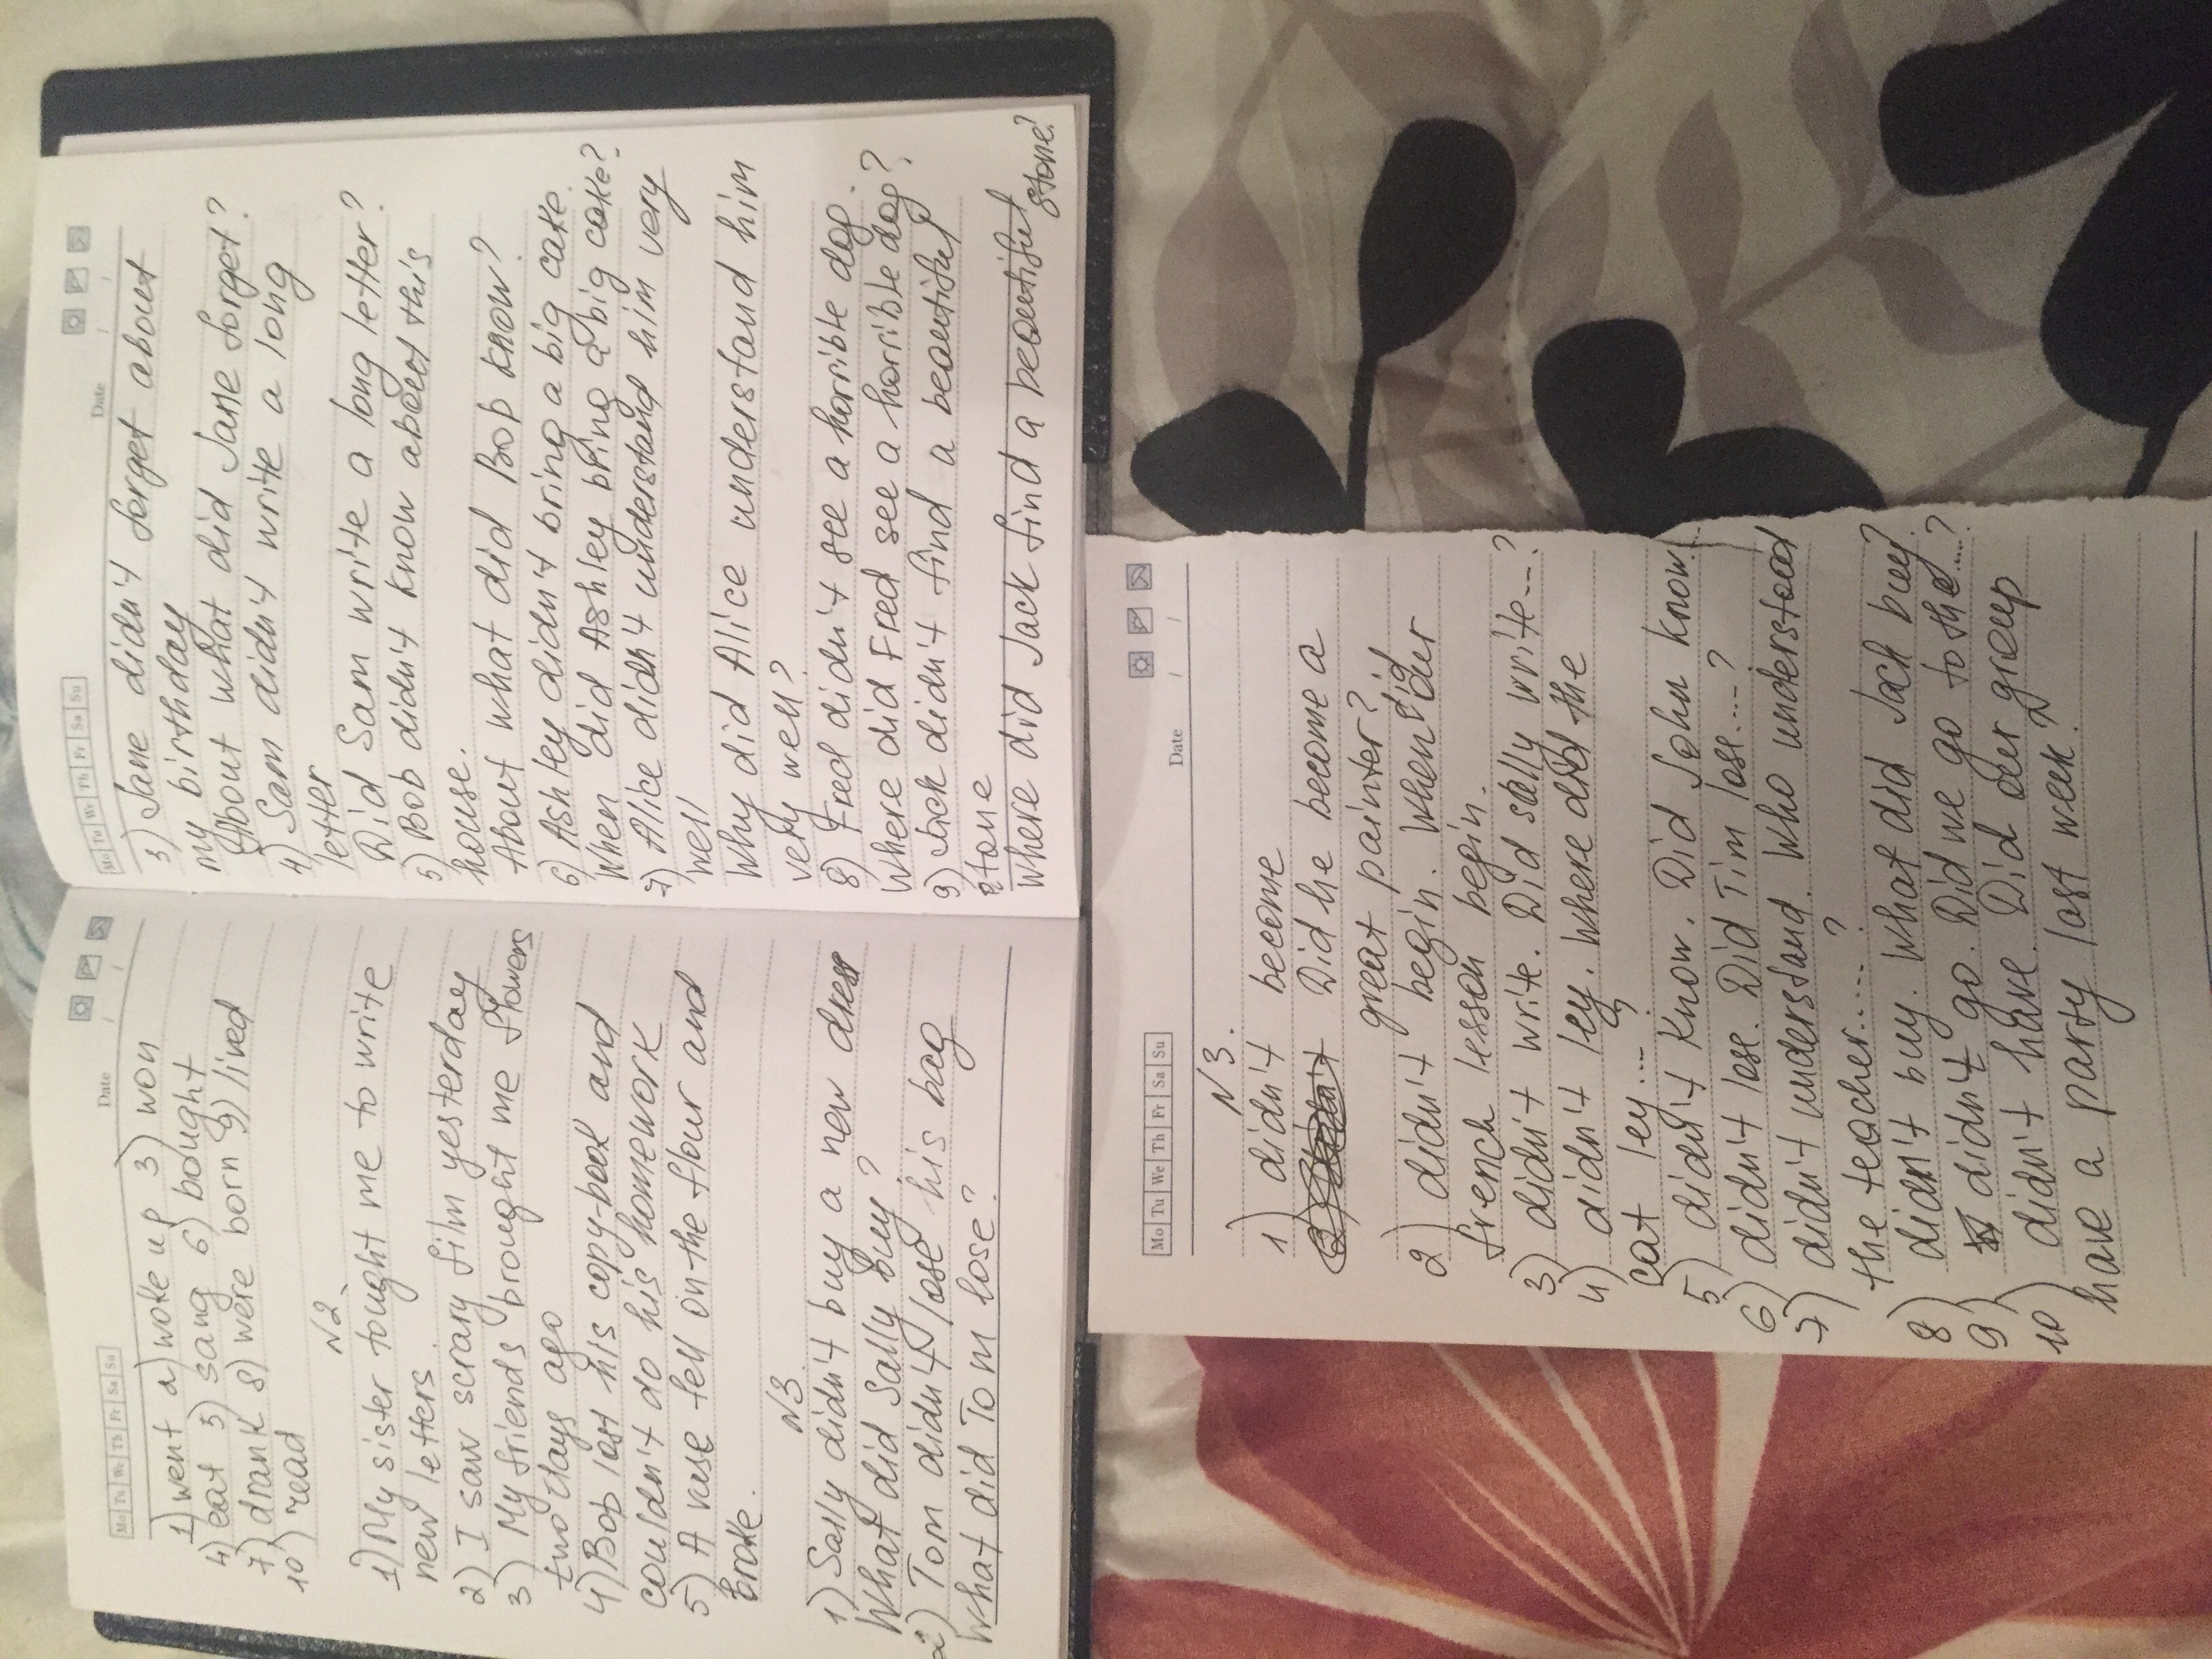 Mo Tu We Th Fr Sa Su
Date / /
1) went 2) woke up 3) won
4) eat 5) sang 6) bought
7) drank 8) were born 9) lived
10) read
N2
1) My sister tought me to write
new letters.
2) I saw scrary film yesterday
3) My friends brought me flowers
two days ago
4) Bob lost his copy-book and
couldn't do his homework
5) A vase fell on the flour and
broke.
N3
1) Sally didn't buy a new dress
What did Sally buy?
2) Tom didn't lose his bag
What did Tom lose?
Mo Tu We Th Fr Sa Su
Date / /
3) Jane didn't forget about
my birthday
About what did Jane forget?
4) Sam didn't write a long
letter
Did Sam write a long letter?
5) Bob didn't know about this
house.
About what did Bob know?
6) Ashley didn't bring a big cake.
When did Ashley bring a big cake?
7) Alice didn't understand him very
well
Why did Alice understand him
very well?
8) Fred didn't see a horrible dog.
Where did Fred see a horrible dog?
9) Jack didn't find a beautiful
stone
where did Jack find a beautiful stone?
Mo Tu We Th Fr Sa Su
Date / /
N3.
1) didn't become
Did he become a
great painter?
2) didn't begin. When did our
french lesson begin.
3) didn't write. Did sally write...?
4) didn't ley. Where did the
cat ley...
5) didn't know. Did John know...
6) didn't lose. Did Tim lose...?
7) didn't understand. Who understood
the teacher....?
8) didn't buy. What did Jack buy?
9) didn't go. Did we go to the....?
10) didn't have. Did our group
have a party last week?